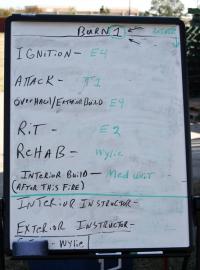 BURN 1
IGNITION - E4
ATTACK - T1
OVERHAUL/EXTERIOR BUILD E4
RIT - E2
REHAB - Wylie
- INTERIOR BUILD - Med Unit
(AFTER THIS FIRE)
INTERIOR INSTRUCTOR -
EXTERIOR INSTRUCTOR -
- WYLIE